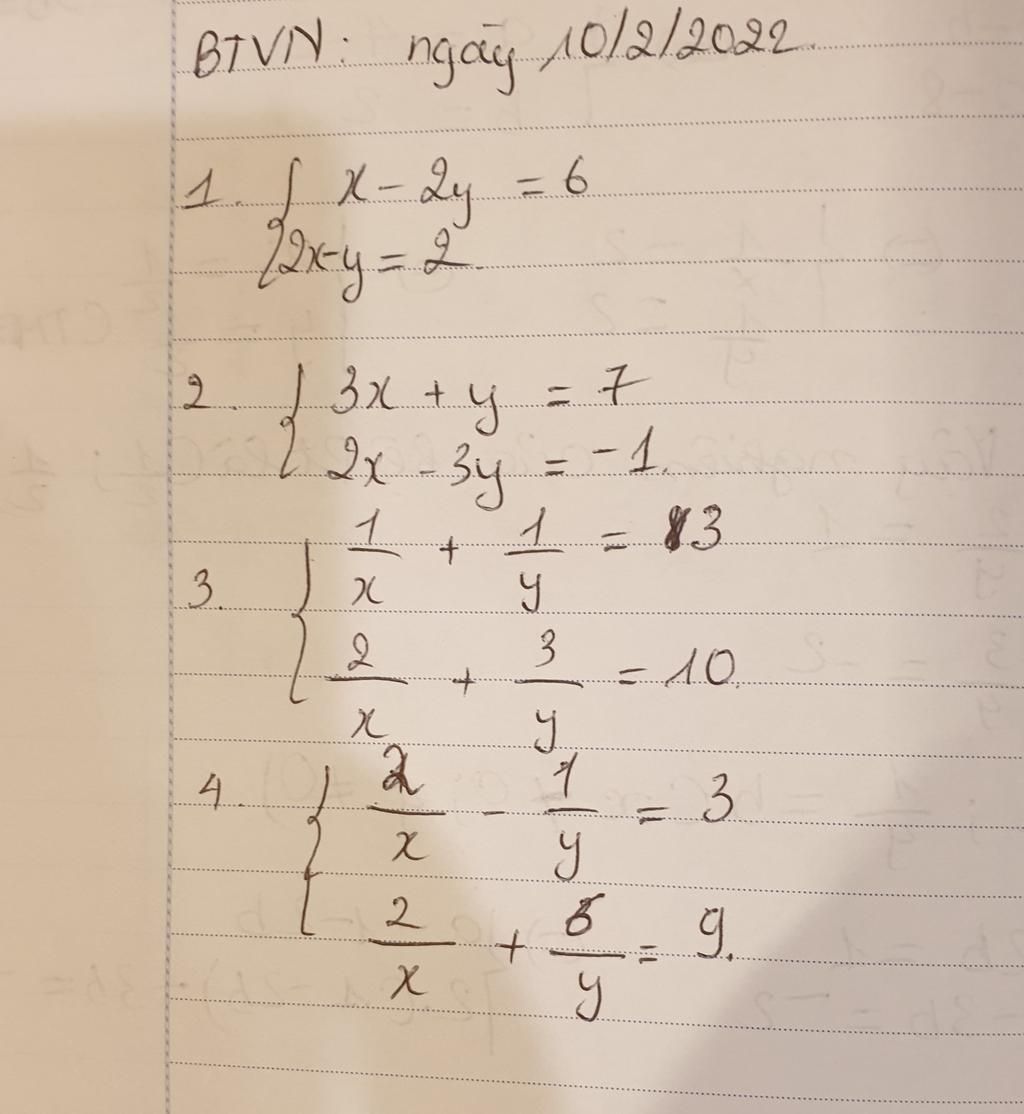 BTVN: ngày 10/2/2022.
1. { x - 2y = 6
2x - y = 2.
2. { 3x + y = 7
2x - 3y = -1.
3. { 1/x + 1/y = 3
2/x + 3/y = 10.
4. { 2/x - 1/y = 3
2/x + 5/y = 9.